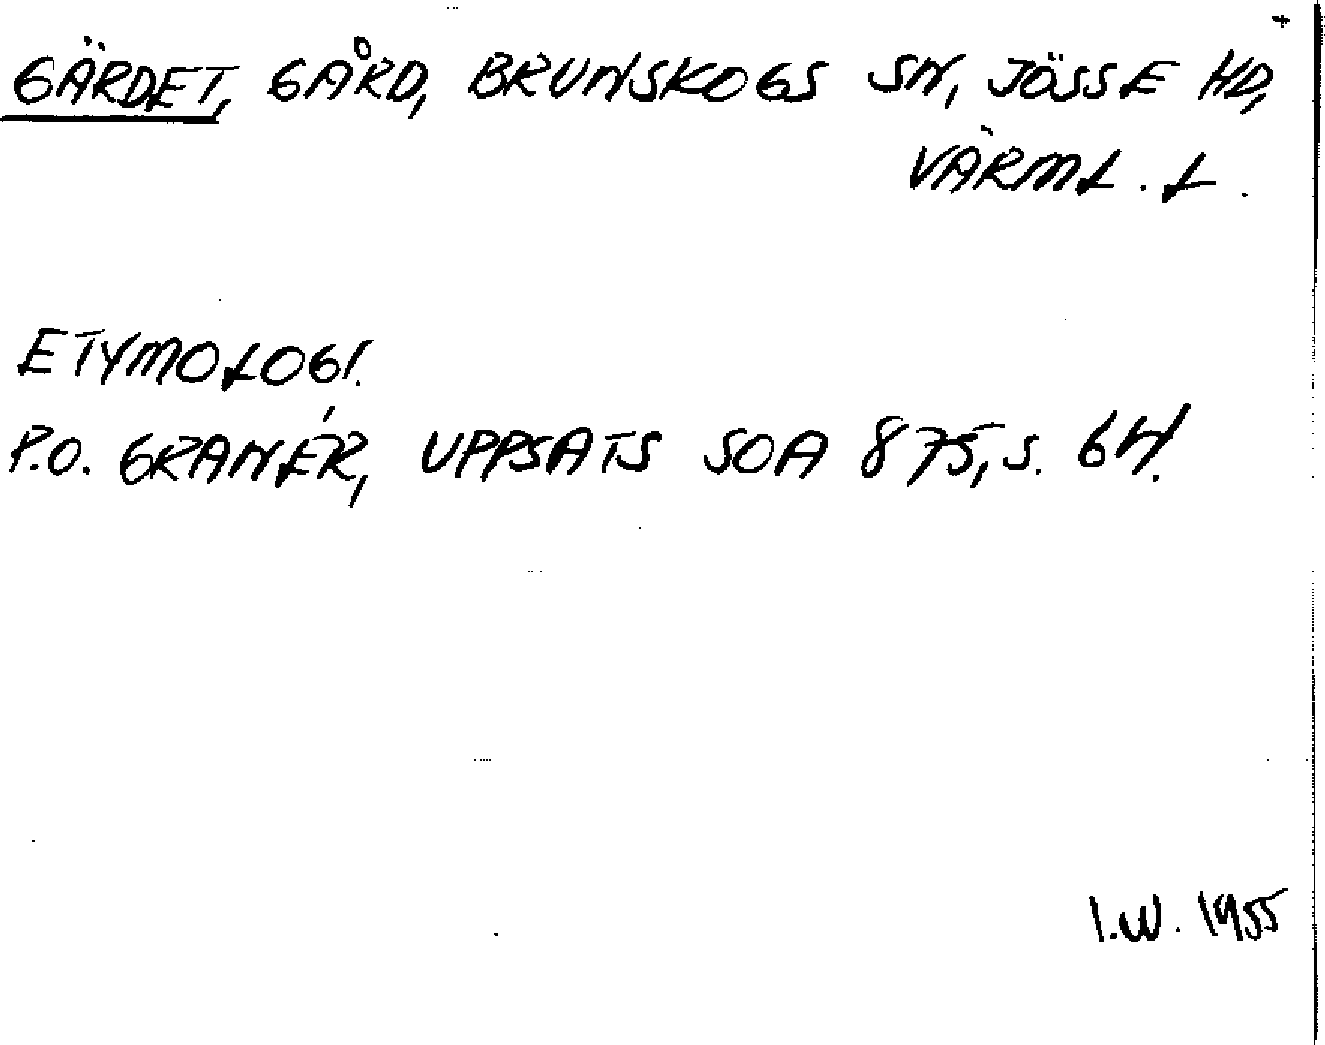 +
GÄRDET, GÅRD, BRUNSKOGS SN, JÖSSE HD,
VÄRML. L.
ETYMOLOGI.
P.O. GRANÉR, UPPSATS SOA 875, S. 64.
I.W. 1955